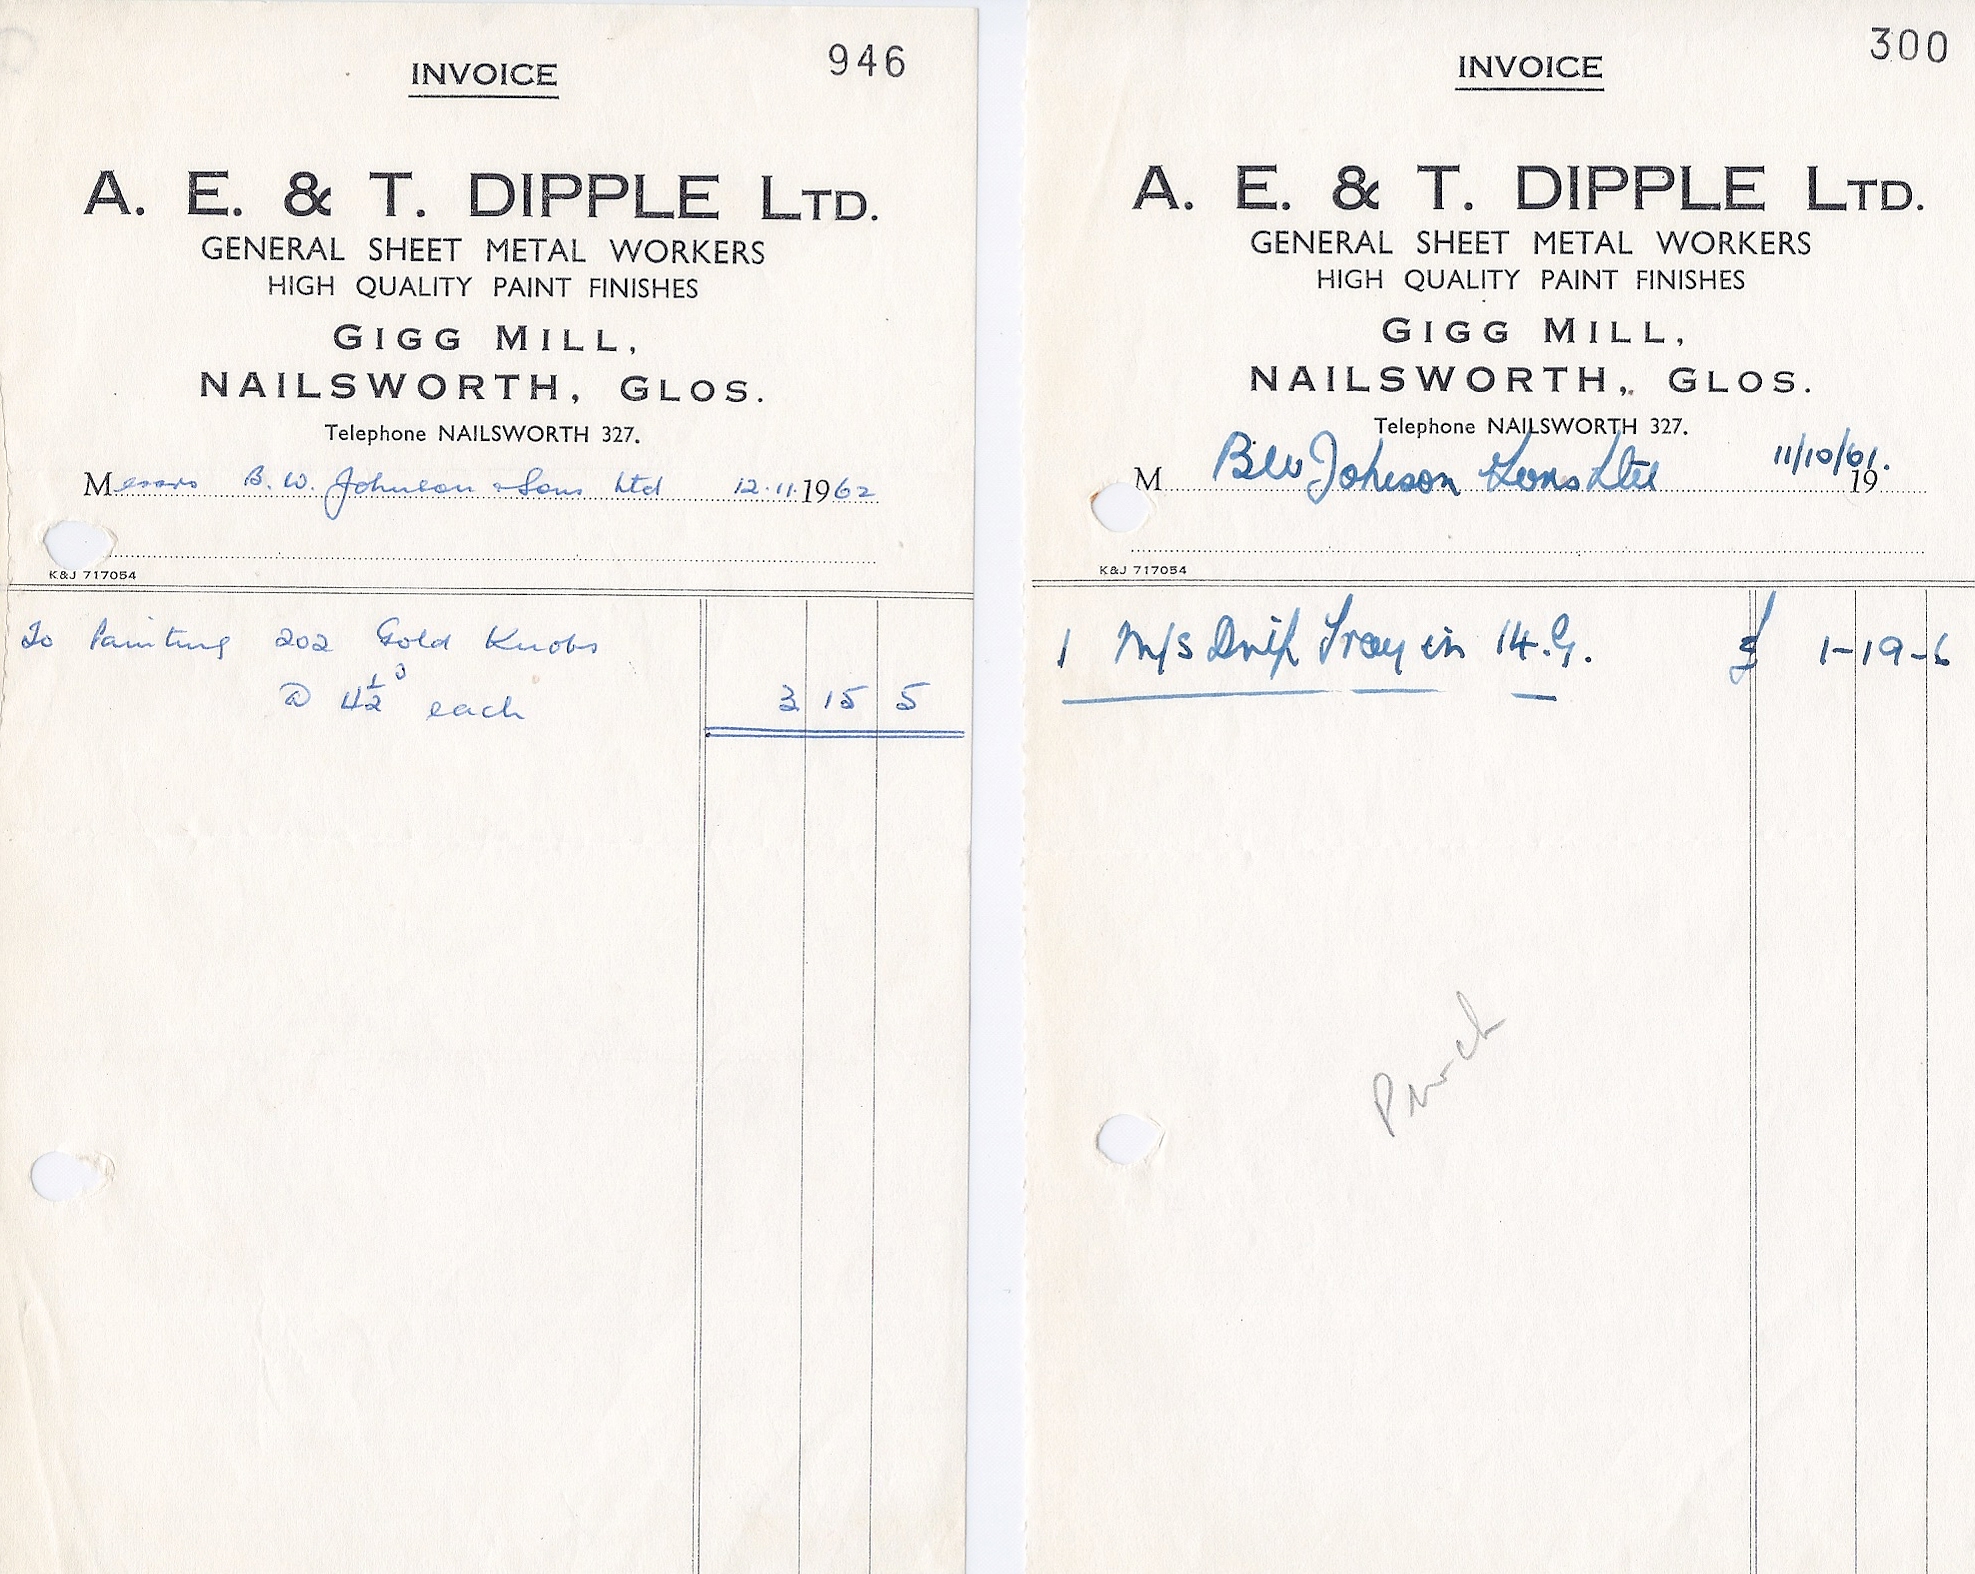 INVOICE
946
A. E. & T. DIPPLE LTD.
GENERAL SHEET METAL WORKERS
HIGH QUALITY PAINT FINISHES
GIGG MILL,
NAILSWORTH, GLOS.
Telephone NAILSWORTH 327.
Messrs B. W. Johnson & Sons Ltd 12.11.1962
K&J 717054
To Painting 202 Gold Knobs
@ 4½ᵈ each 3 15 5
INVOICE
300
A. E. & T. DIPPLE LTD.
GENERAL SHEET METAL WORKERS
HIGH QUALITY PAINT FINISHES
GIGG MILL,
NAILSWORTH, GLOS.
Telephone NAILSWORTH 327.
M BW Johnson & Sons Ltd 11/10/61. 19
K&J 717054
1 M/S Drip Tray in 14.G. £ 1-19-6